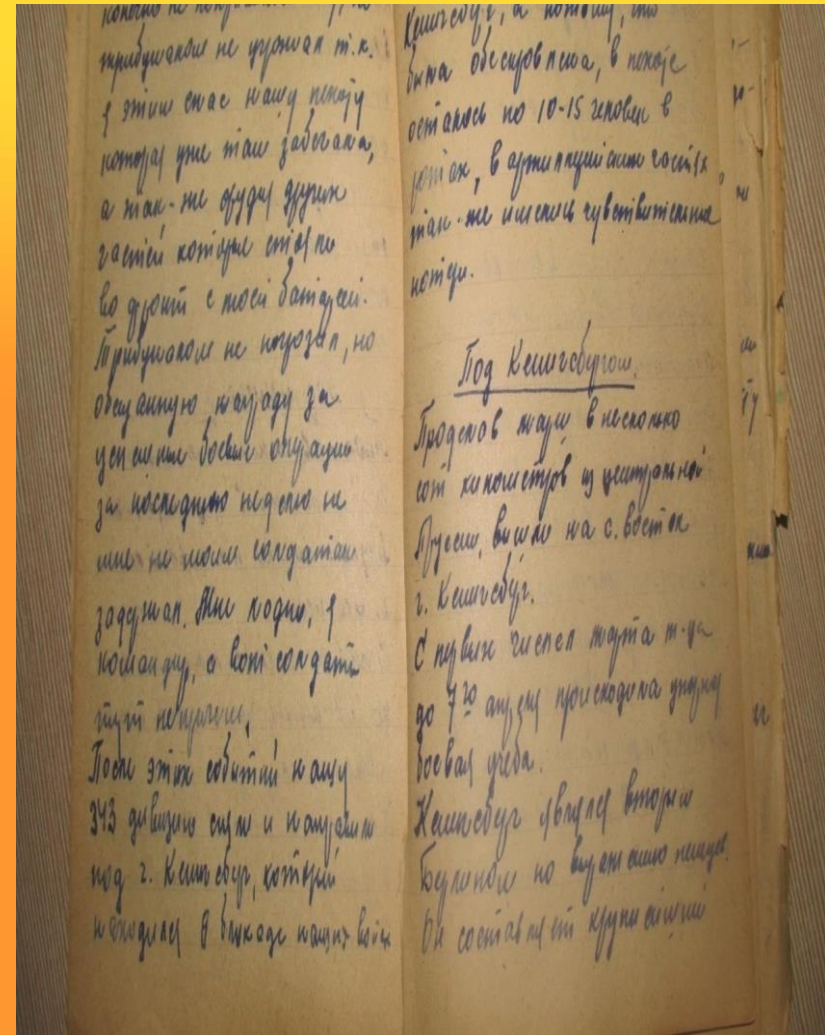 конечно не
трибуналом не угрожал т.к.
я этим спас нашу пехоту
которая уже там забегала,
а так-же орудия других
частей которые стояли
во фронт с моей батареей.
Трибуналом не
но
обещанную награду за
успешные боевые операции
за последнюю неделю не
мне не моим солдатам
задержал. Мне ладно, я
командир, а вот солдаты
тут непричем.
После этих событий нашу
343 дивизию сняли и направили
под г. Кенигсбург, который
находился в блокаде наших войск
Кенигсбург, а потому, что
была обескровлена, в пехоте
осталось по 10-15 человек в
ротах, в артиллерийских частях
так-же имелись чувствительные
потери.
Под Кенигсбургом.
Проделав марш в несколько
сот километров из центральной
Пруссии, вышли на с. восток
г. Кенигсбург.
С первых чисел марта м-ца
до 7го апреля происходила упорная
боевая учеба.
Кенигсбург являлся вторым
Берлином по выражению немцев.
Он составляет крупнейший